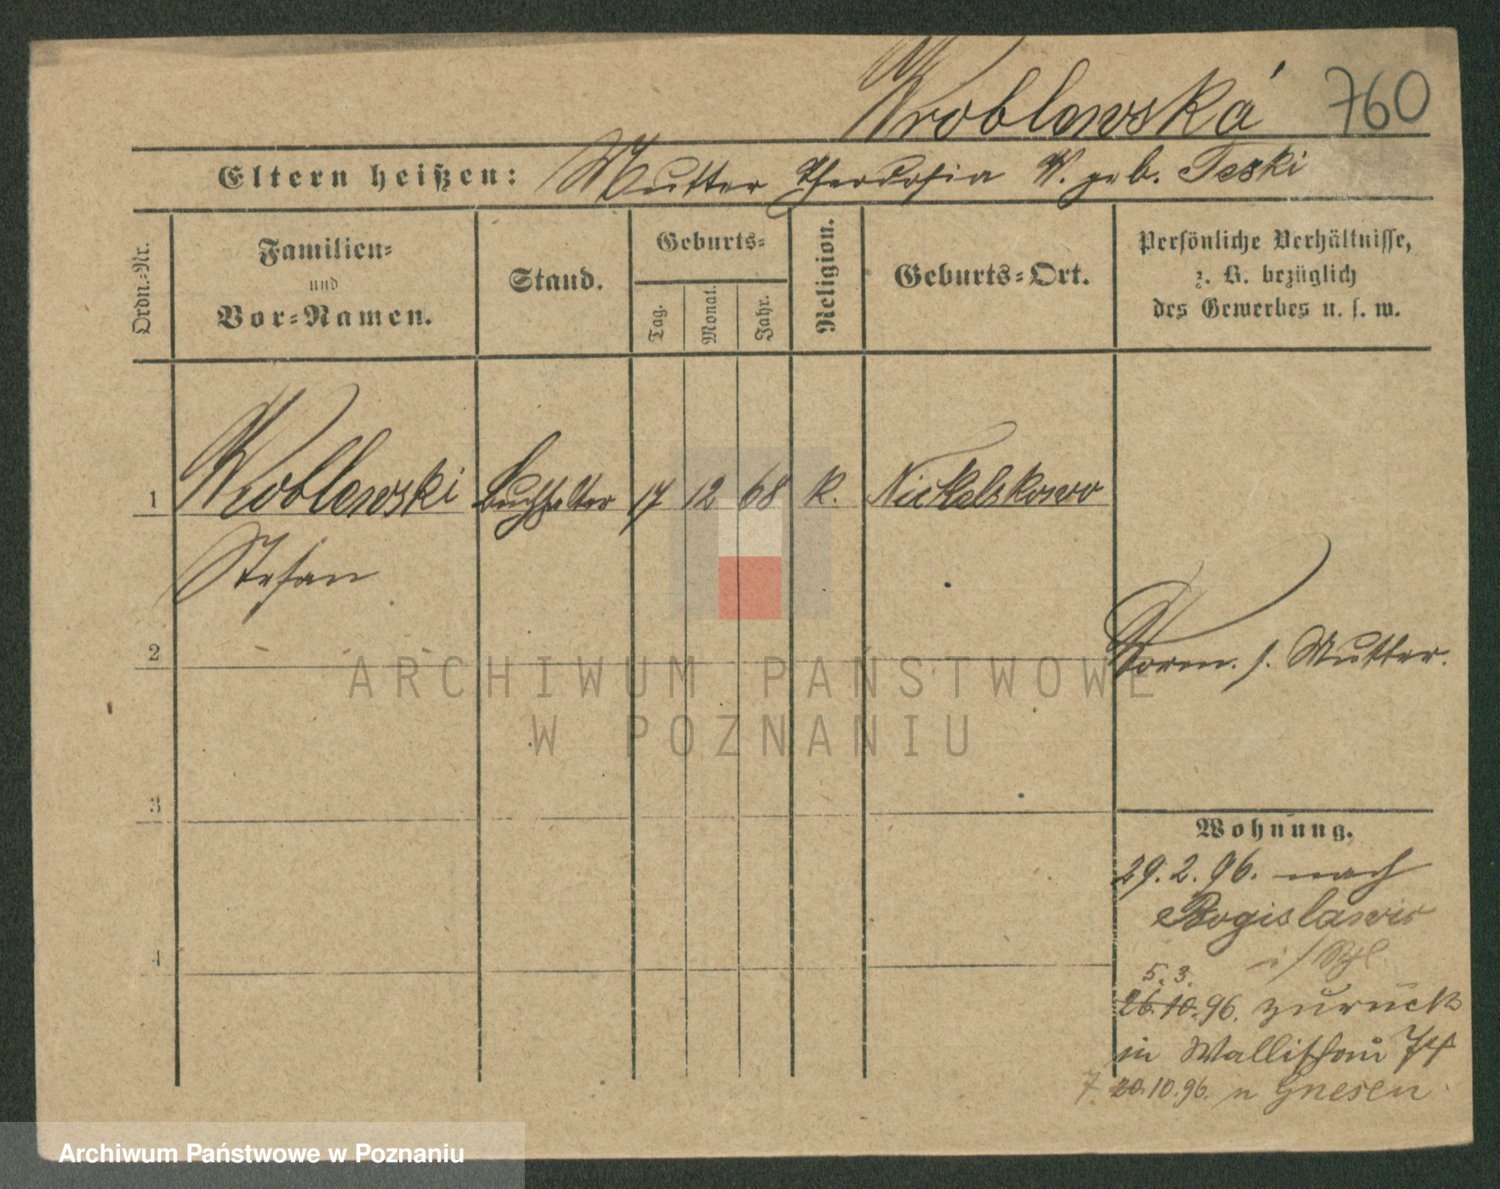 Wroblewska 760
Eltern heißen: Mutter Theodosia W. geb. Teski
Ordn.-Nr.
Familien-
und
Vor-Namen.
Stand.
Geburts-
Tag.
Monat.
Jahr.
Religion.
Geburts-Ort.
Persönliche Verhältnisse,
z. B. bezüglich
des Gewerbes u. s. w.
1 Wroblewski Buchhalter 17 12 68 k. Nickelskowo
Stefan
2
Vorm. s. Mutter.
3
Wohnung.
29.2.96. nach
Bogislawic
4
5.3.
26.10.96. zurück
in Wallischei 74
7. 20.10.96. n Gnesen
ARCHIWUM PAŃSTWOWE
W POZNANIU
Archiwum Państwowe w Poznaniu